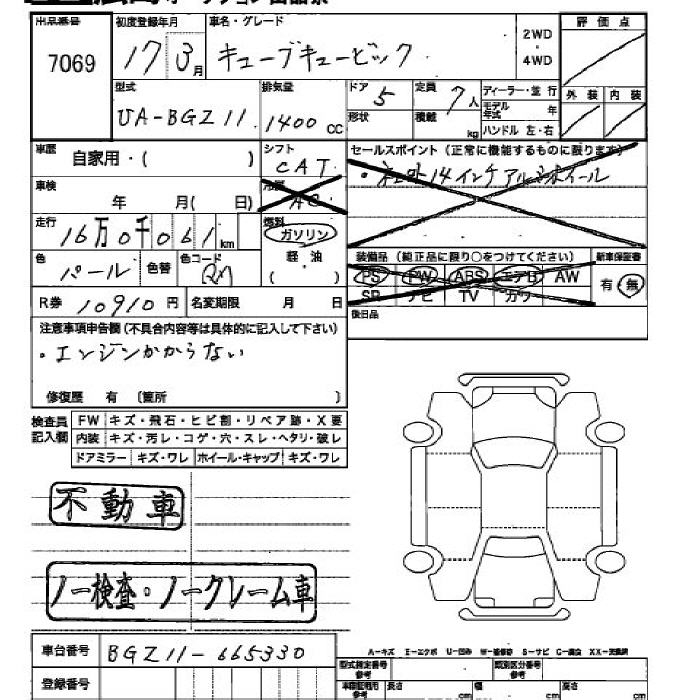 出品番号 7069
初度登録年月 17 3月
車名・グレード キューブキュービック
2WD・4WD
評価点
型式 UA-BGZ11
排気量 1400 CC
ドア 5
形状
定員 7人
積載 kg
ディーラー・並行
モデル年式 年
ハンドル 左・右
外装 内装
車歴 自家用・( )
シフト CAT
車検 年 月( 日)
冷房 AC
走行 16万0千061km
燃料 ガソリン 軽油 ( )
色 パール 色替
色コード
R券 10910円 名変期限 月 日
セールスポイント(正常に機能するものに限ります)
14インチアルミホイール
装備品(純正品に限り○をつけてください)
PS PW ABS エアB AW
SR ナビ TV カワ
新車保証書 有・無
後日品
注意事項申告欄(不具合内容等は具体的に記入して下さい)
・エンジンかからない
修復歴 有 〔箇所 〕
検査員記入欄
FW キズ・飛石・ヒビ割・リペア跡・X要
内装 キズ・汚レ・コゲ・穴・スレ・ヘタリ・破レ
ドアミラー キズ・ワレ ホイール・キャップ キズ・ワレ
不動車
ノー検査・ノークレーム車
車台番号 BGZ11-665330
登録番号
A-キズ E-エクボ U-凹み W-補修跡 S-サビ C-腐食 XX-交換済
型式指定番号 参考
類別区分番号 参考
車庫証明用 参考 長さ cm 幅 cm 高さ cm